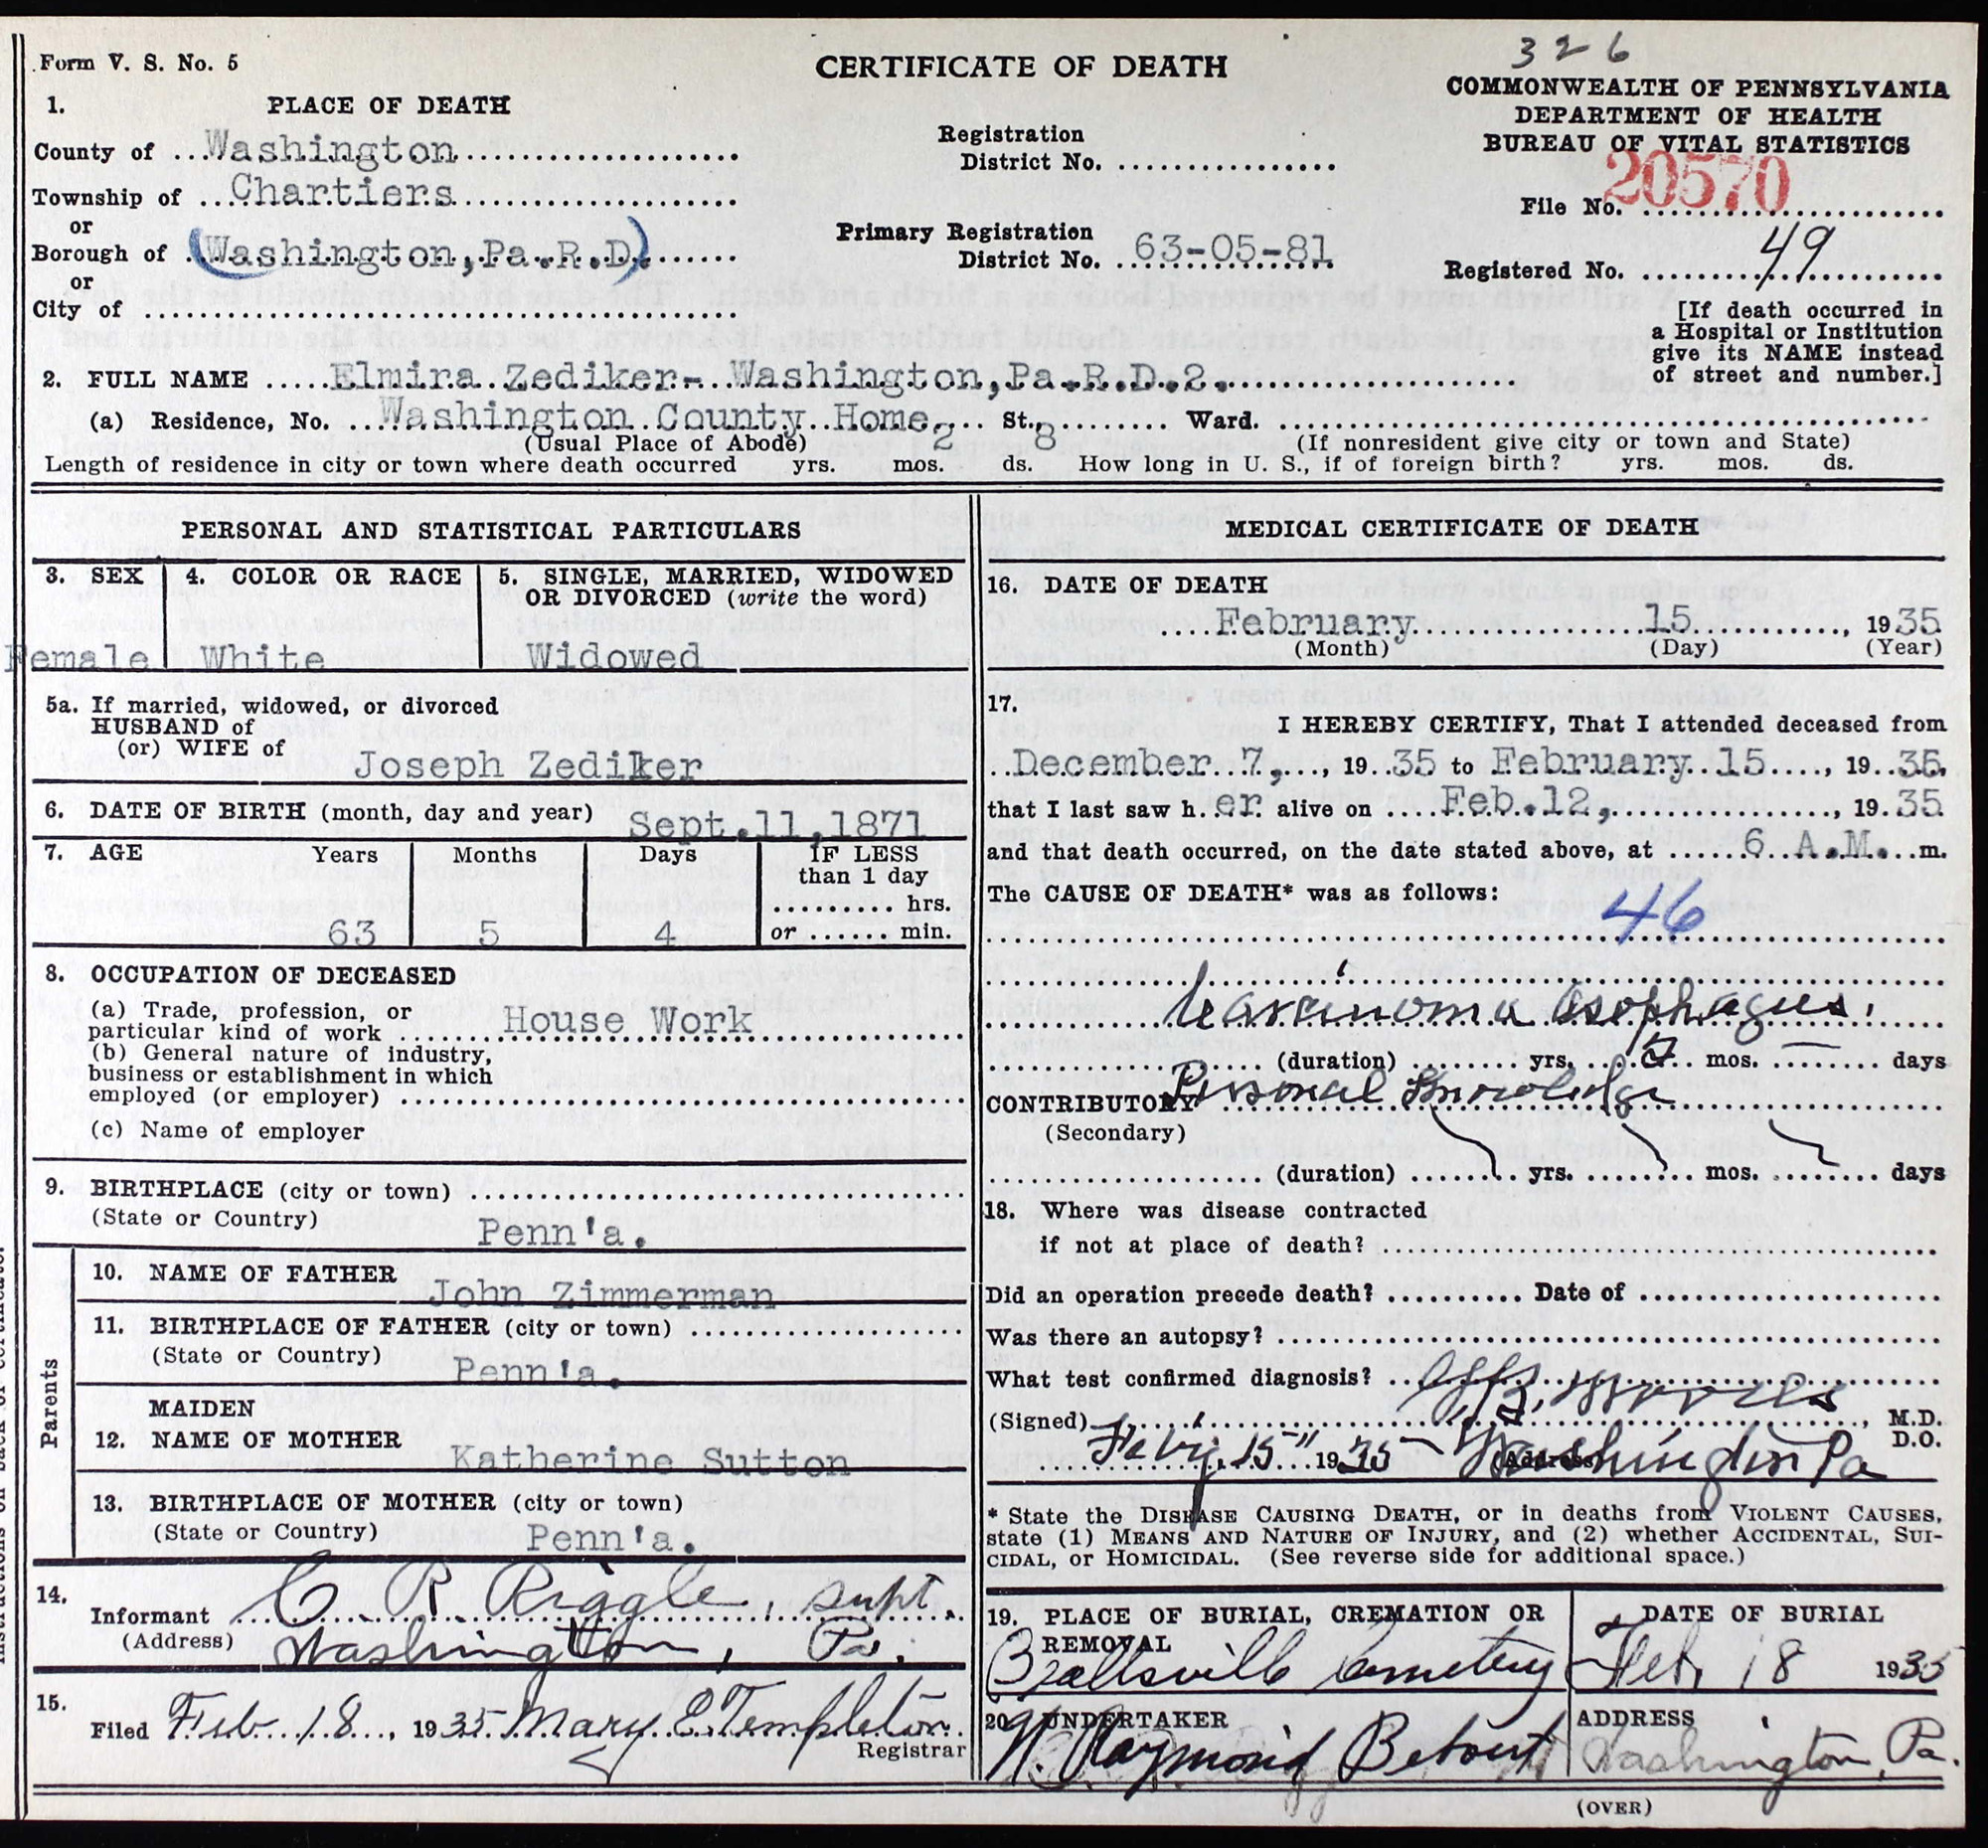 326
Form V. S. No. 5
CERTIFICATE OF DEATH
COMMONWEALTH OF PENNSYLVANIA
DEPARTMENT OF HEALTH
BUREAU OF VITAL STATISTICS
1. PLACE OF DEATH
County of ...Washington
Township of ...Chartiers
or
Borough of (Washington,Pa.R.D)
or
City of
Registration
District No.
Primary Registration
District No. 63-05-81
File No. 20570
Registered No. 49
[If death occurred in
a Hospital or Institution
give its NAME instead
of street and number.]
2. FULL NAME Elmira Zediker- Washington,Pa.R.D.2.
(a) Residence, No. Washington County Home St. Ward.
(Usual Place of Abode) 2 8 (If nonresident give city or town and State)
Length of residence in city or town where death occurred yrs. mos. ds. How long in U. S., if of foreign birth? yrs. mos. ds.
PERSONAL AND STATISTICAL PARTICULARS
3. SEX
Female
4. COLOR OR RACE
White
5. SINGLE, MARRIED, WIDOWED
OR DIVORCED (write the word)
Widowed
5a. If married, widowed, or divorced
HUSBAND of
(or) WIFE of
Joseph Zediker
6. DATE OF BIRTH (month, day and year) Sept.11,1871
7. AGE Years Months Days IF LESS
than 1 day
hrs.
63 5 4 or ...... min.
8. OCCUPATION OF DECEASED
(a) Trade, profession, or
particular kind of work House Work
(b) General nature of industry,
business or establishment in which
employed (or employer)
(c) Name of employer
9. BIRTHPLACE (city or town)
(State or Country) Penn'a.
Parents
10. NAME OF FATHER John Zimmerman
11. BIRTHPLACE OF FATHER (city or town)
(State or Country) Penn'a.
MAIDEN
12. NAME OF MOTHER Katherine Sutton
13. BIRTHPLACE OF MOTHER (city or town)
(State or Country) Penn'a.
14.
Informant C R Riggle, supt.
(Address) Washington, Pa.
15.
Filed Feb 18, 1935 Mary E. Templeton
Registrar
MEDICAL CERTIFICATE OF DEATH
16. DATE OF DEATH
February 15, 1935
(Month) (Day) (Year)
17.
I HEREBY CERTIFY, That I attended deceased from
December 7,, 19 35 to February 15, 19 35.
that I last saw h er alive on Feb.12,, 19 35
and that death occurred, on the date stated above, at 6 A.M. m.
The CAUSE OF DEATH* was as follows:
46
Carcinoma Esophagus.
(duration) yrs. mos. days
CONTRIBUTORY Personal Knowledge
(Secondary)
(duration) yrs. mos. days
18. Where was disease contracted
if not at place of death?
Did an operation precede death? Date of
Was there an autopsy?
What test confirmed diagnosis?
(Signed) M.D.
D.O.
Feby 15" 1935 (Address) Washington Pa
* State the DISEASE CAUSING DEATH, or in deaths from VIOLENT CAUSES,
state (1) MEANS AND NATURE OF INJURY, and (2) whether ACCIDENTAL, SUI-
CIDAL, or HOMICIDAL. (See reverse side for additional space.)
19. PLACE OF BURIAL, CREMATION OR
REMOVAL
Beallsville Cemetery
DATE OF BURIAL
Feb, 18 1935
20. UNDERTAKER
Raymond
ADDRESS
Washington, Pa.
(OVER)